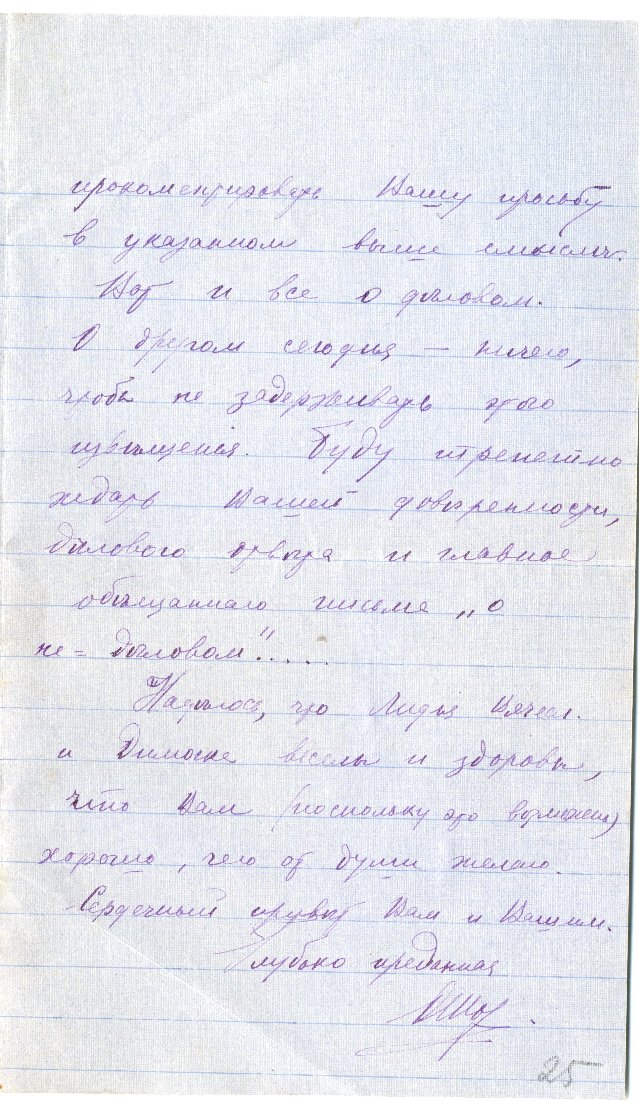 прокоментировать Вашу просьбу
в указанном выше смысле.
Вот и все о дѣловом.
О другом сегодня — ничего,
чтобы не задерживать этого
извѣщения. Буду трепетно
ждать Вашей довѣренности,
дѣлового отвѣта и главное
обѣщаннаго письма „о
не = дѣловом"!.....
Надѣюсь, что Лидия Вячесл.
и Димочка веселы и здоровы,
что Вам (поскольку это возможно)
хорошо, чего от души желаю.
Сердечный привѣт Вам и Вашим.
Глубоко преданная
25